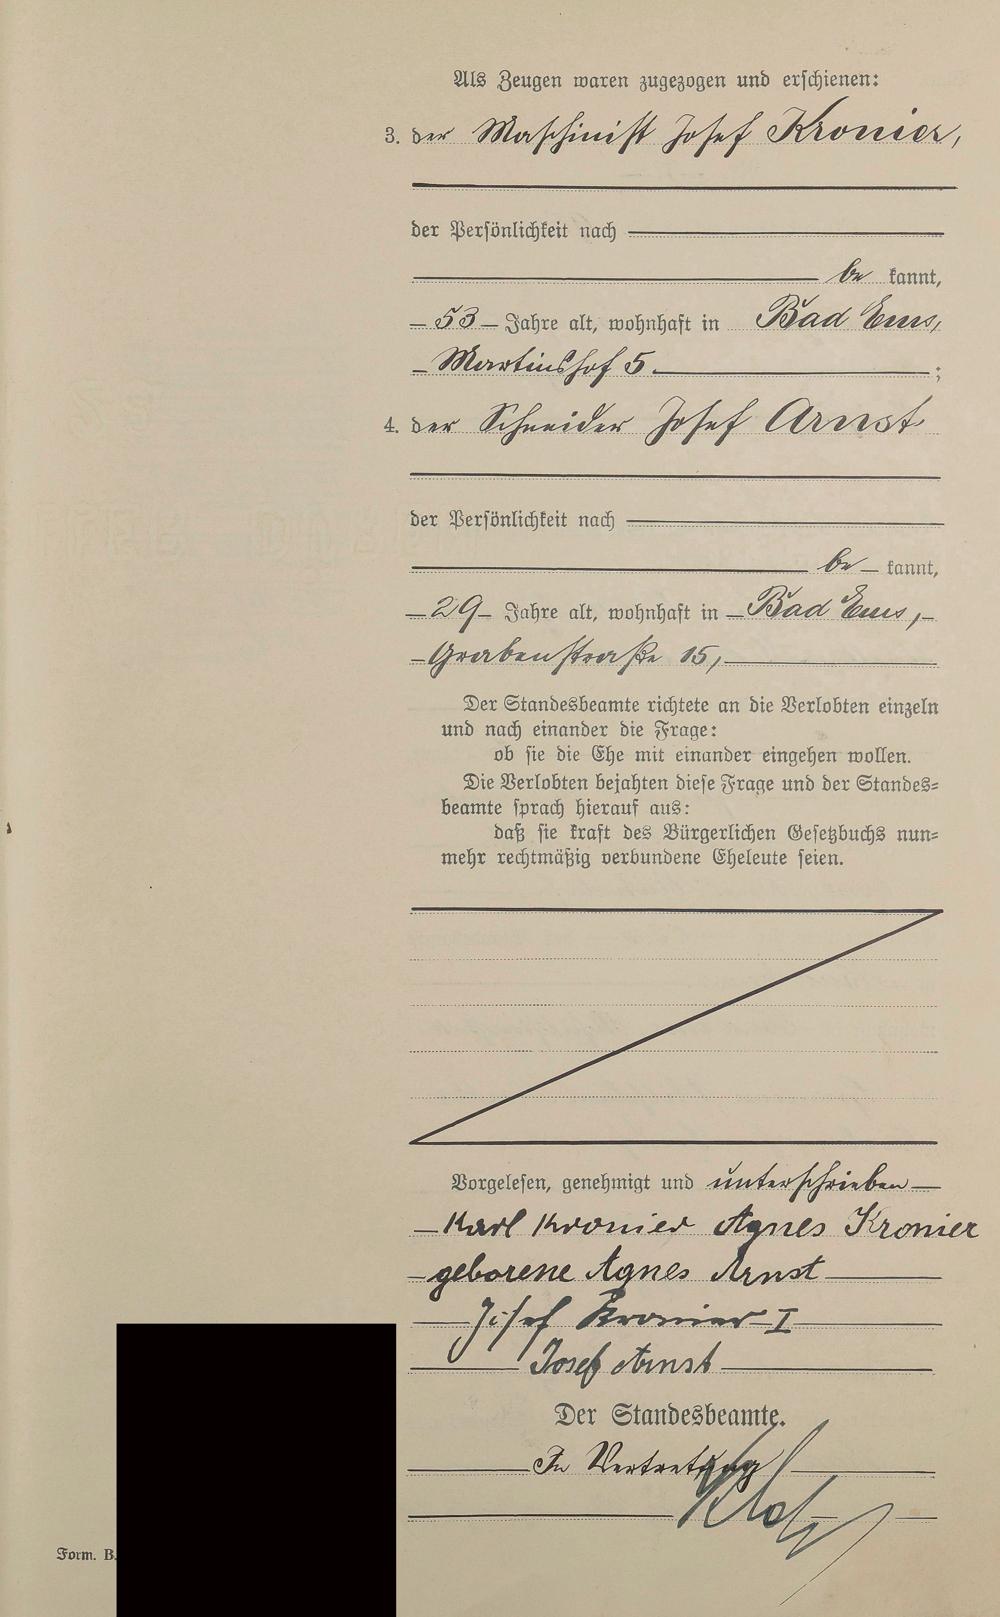 Als Zeugen waren zugezogen und erschienen:
3. der Maschinist Josef Kronier,
der Persönlichkeit nach
be kannt,
53 Jahre alt, wohnhaft in Bad Ems,
Martinshof 5.;
4. der Schneider Josef Arnst
der Persönlichkeit nach
be kannt,
29 Jahre alt, wohnhaft in Bad Ems,
Grabenstraße 15,
Der Standesbeamte richtete an die Verlobten einzeln
und nach einander die Frage:
ob sie die Ehe mit einander eingehen wollen.
Die Verlobten bejahten diese Frage und der Standes=
beamte sprach hierauf aus:
daß sie kraft des Bürgerlichen Gesetzbuchs nun=
mehr rechtmäßig verbundene Eheleute seien.
Vorgelesen, genehmigt und unterschrieben
Karl Kronier Agnes Kronier
geborene Agnes Arnst
Josef Kronier I
Josef Arnst
Der Standesbeamte.
In Vertretung
Form. B.